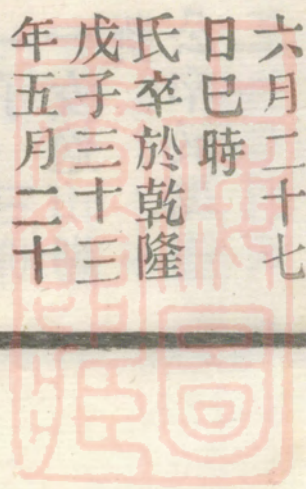 六月二十七
日巳時
氏卒於乾隆
戊子三十三
年五月二十